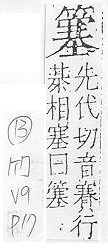 簺
先代切音賽行
棊相塞曰簺
⑬
V9
P.17